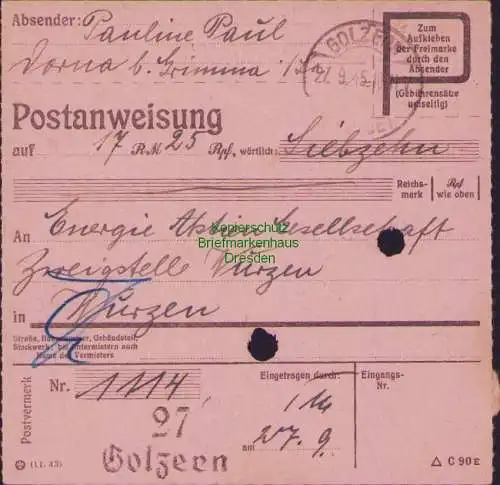 Absender: Pauline Paul
Dorna b. Grimma i/Sa
GOLZERN
27.9.45
Zum
Aufkleben
der Freimarke
durch den
Absender
(Gebührensätze
umseitig)
Postanweisung
auf 17 RM 25 Rpf, wörtlich: Siebzehn
Reichsmark
Rpf wie oben
An Energie Aktien Gesellschaft
Zweigstelle Wurzen
in Wurzen
Kopierschutz
Briefmarkenhaus
Dresden
Straße, Hausnummer, Gebäudeteil,
Stockwerk; bei Untermietern auch
Name des Vermieters
Postvermerk
Nr. 1114
27
Golzern
Eingetragen durch:
am 27.9.
Eingangs-
Nr.
(11. 43)
C 90 E